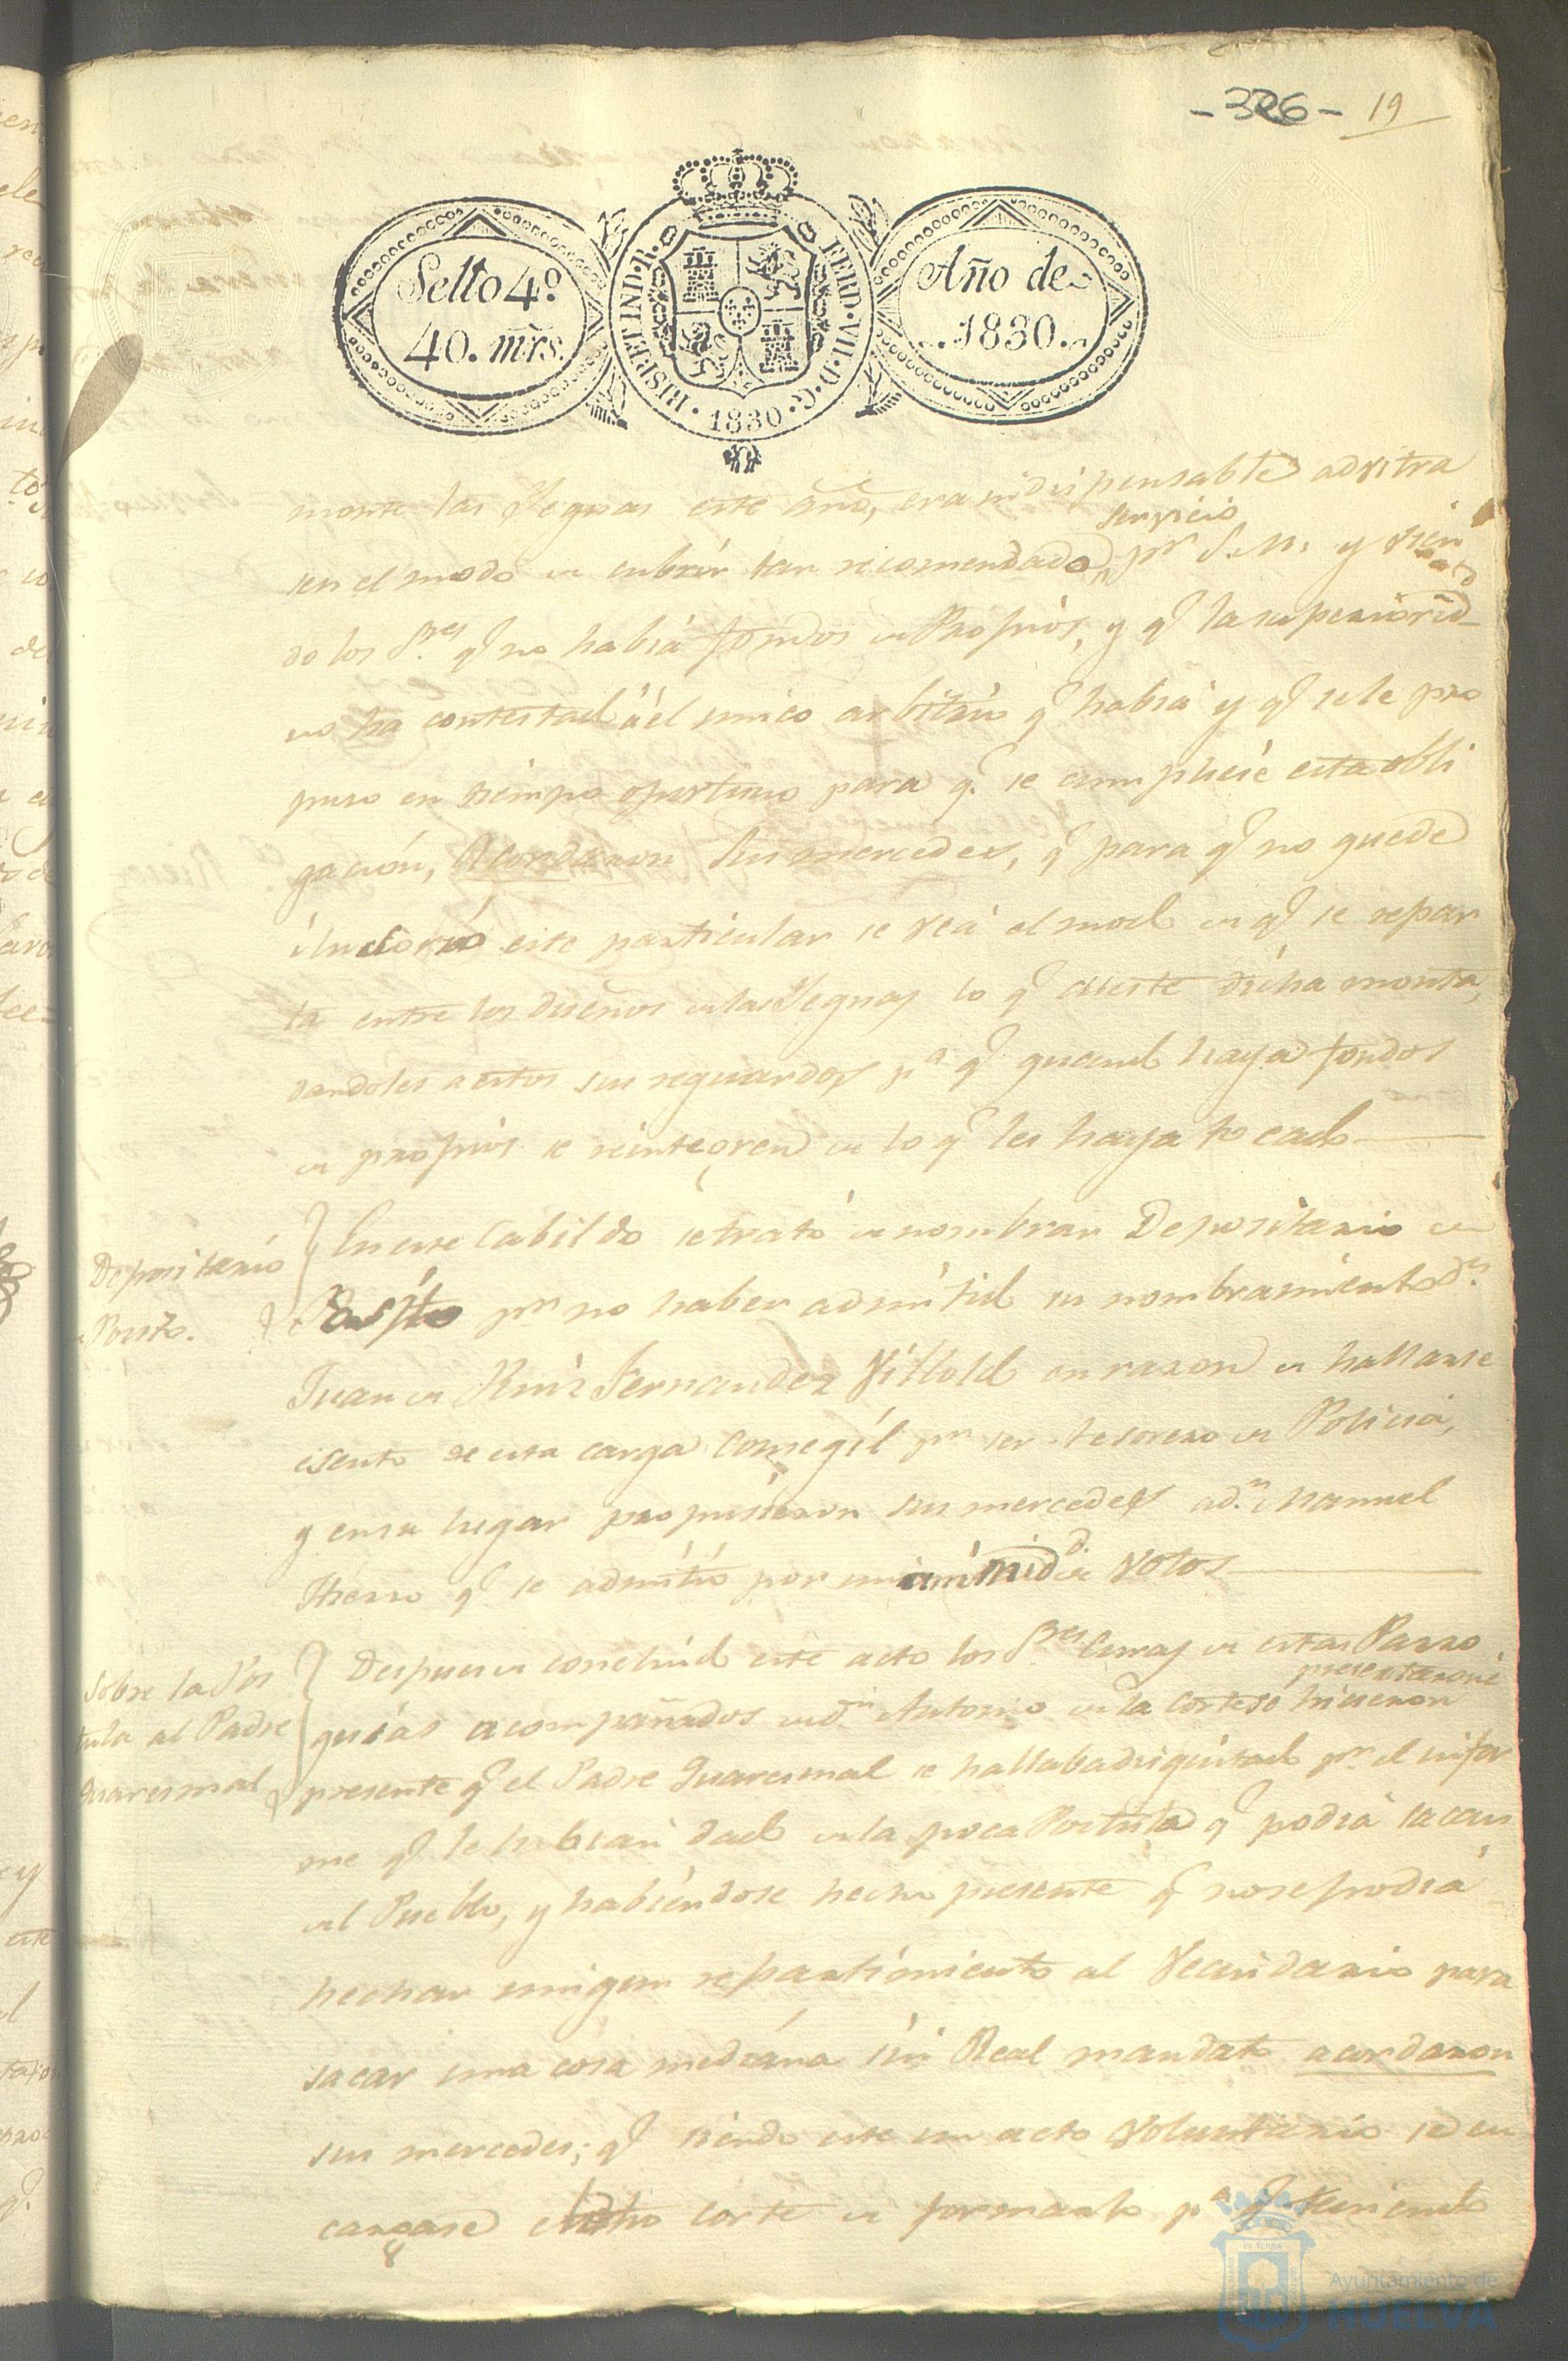 -326- 19
Sello 4º
40. mrs.
HISP.ET IND.R. FERD.VII.D.G. 1830
Año de
1830.
monte las Yeguas este año, era indispensable advitra
sen el modo de cubrir tan recomendado servicio pr S.M. y vien
do los Sres q no habia fondos de Propios, y q la superiorid
no ha contestado á el unico arbitrio q habia y q sele pro
puso en tiempo oportuno para q se cumpliese esta obli
gación, Acordaron sus mercedes, q para q no quede
ilusorio este particular se vea el modo en q se repar
ta entre los dueños de las Yeguas lo q cueste dicha monta,
dandoles a estos sus reguardos pa q quando haya fondos
de propios se reintegren de lo q les haya tocado
Depositario
de Posito.
En ese Cabildo se trató de nombrar Depositario de
Posito pr no haber admitido su nombramiento Dn
Juan de Ruiz Fernandez Villoldo en razon de hallarse
esento de esta carga Consegil pr ser tesorero de Policia,
y en su lugar propusieron sus mercedes a Dn Manuel
Hierro q se admitió por unanimidd de votos
Sobre la Pos
tula al Padre
Quaresmal
Despues de concluido este acto los Sres Curas de estas Parro
quias acompañados de Dn Antonio de la Corte se presentaron é hicieron
presente q el Padre Quaresmal se hallaba disgustado pr el infor
me q le habian dado de la poca Postula q podia sacar
del Pueblo, y habiendose hecho presente q no se podia
hechar ningun repartimiento al Vecindario para
sacar una cosa mediana sin Real mandato acordaron
sus mercedes; q siendo este un acto voluntario se en
cargase dicho Corte de formarlo pa q reuniendo
Ayuntamiento de
HUELVA